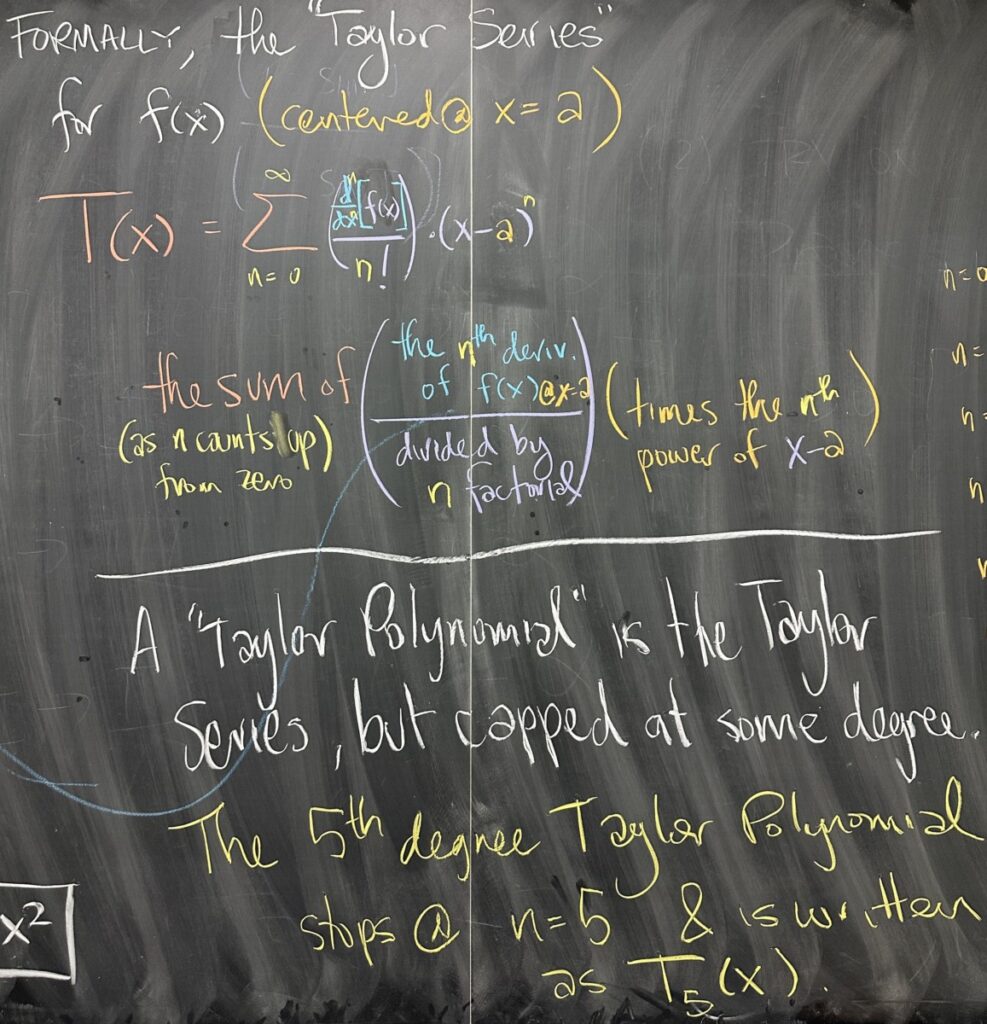 FORMALLY, the "Taylor Series"
for f(x) (centered @ x = a)
T(x) = ∞ Σ n=0 (dⁿ/dxⁿ [f(x)] / n!) · (x-a)ⁿ
the sum of
(as n counts up)
from zero
(the nth deriv.
of f(x) @ x=a
divided by
n factorial)
(times the nth
power of x-a)
n=0
n=
n=
n
n
A "Taylor Polynomial" is the Taylor
Series, but capped at some degree.
The 5th degree Taylor Polynomial
stops @ n=5 & is written
as T₅(x).
x²